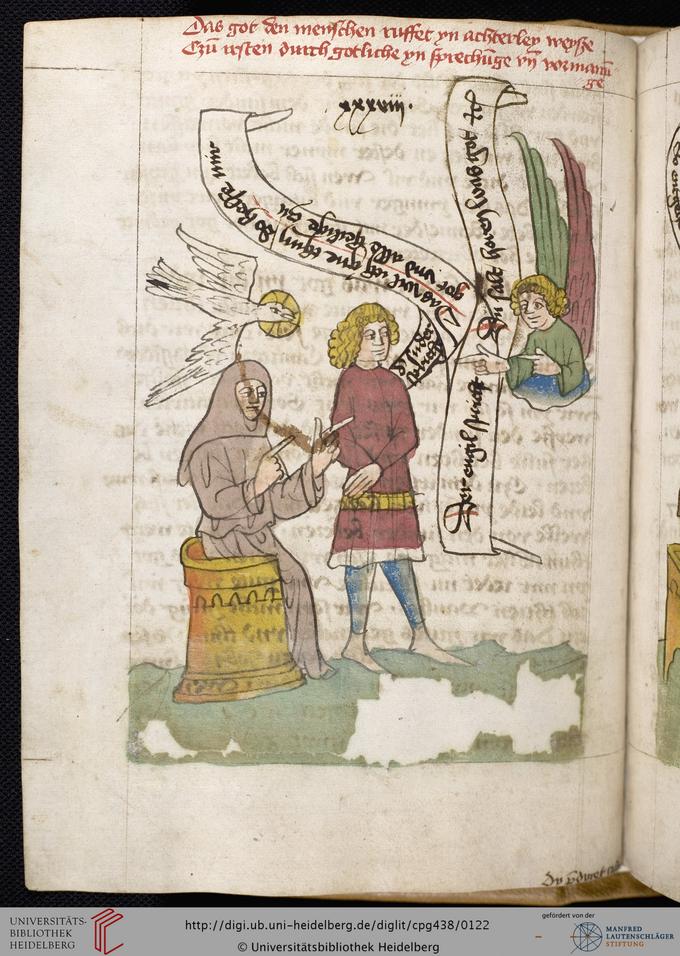 Das got den menschen ruffet yn achterley weyße
Czu ersten durch gotliche yn sprechūge vn̄ vormanū
ge
xxxviii.
Das wil ich gne thun So helffe mir
got vnd alle heilige
Du salt horen was got
Der engil spricht
UNIVERSITÄTS-
BIBLIOTHEK
HEIDELBERG
http://digi.ub.uni-heidelberg.de/diglit/cpg438/0122
© Universitätsbibliothek Heidelberg
gefördert von der
MANFRED
LAUTENSCHLÄGER
STIFTUNG